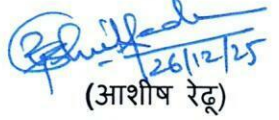 26/12/25
(आशीष रेढू)